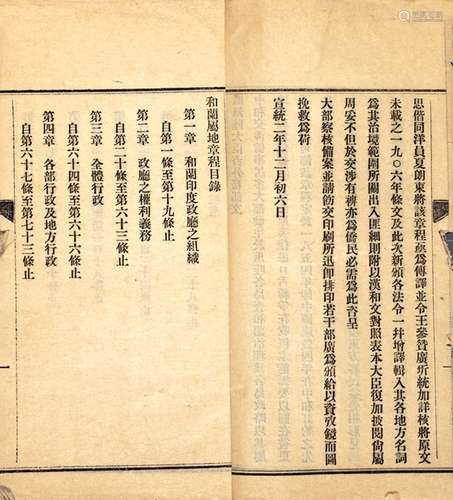 思偕同洋員夏朗東將該章程 爲傳譯並令王參贊廣圻統加詳核將原文
未載之一九〇六年條文及此次新頒各法令一幷增譯輯入其各地方名詞
爲其治境範圍所關出入匪細則附以漢和文對照表本大臣復加披閱尙屬
周妥不但於交涉有裨亦爲僑民必需爲此咨呈
大部察核備案並請飭交印刷所迅卽排印若干部廣爲頒給以資攷鏡而圖
挽救爲荷
宣統二年十二月初六日
和蘭屬地章程目錄
第一章 和蘭印度政廳之組織
自第一條至第十九條止
第二章 政廳之權利義務
自第二十條至第六十三條止
第三章 全體行政
自第六十四條至第六十六條止
第四章 各部行政及地方行政
自第六十七條至第七十三條止